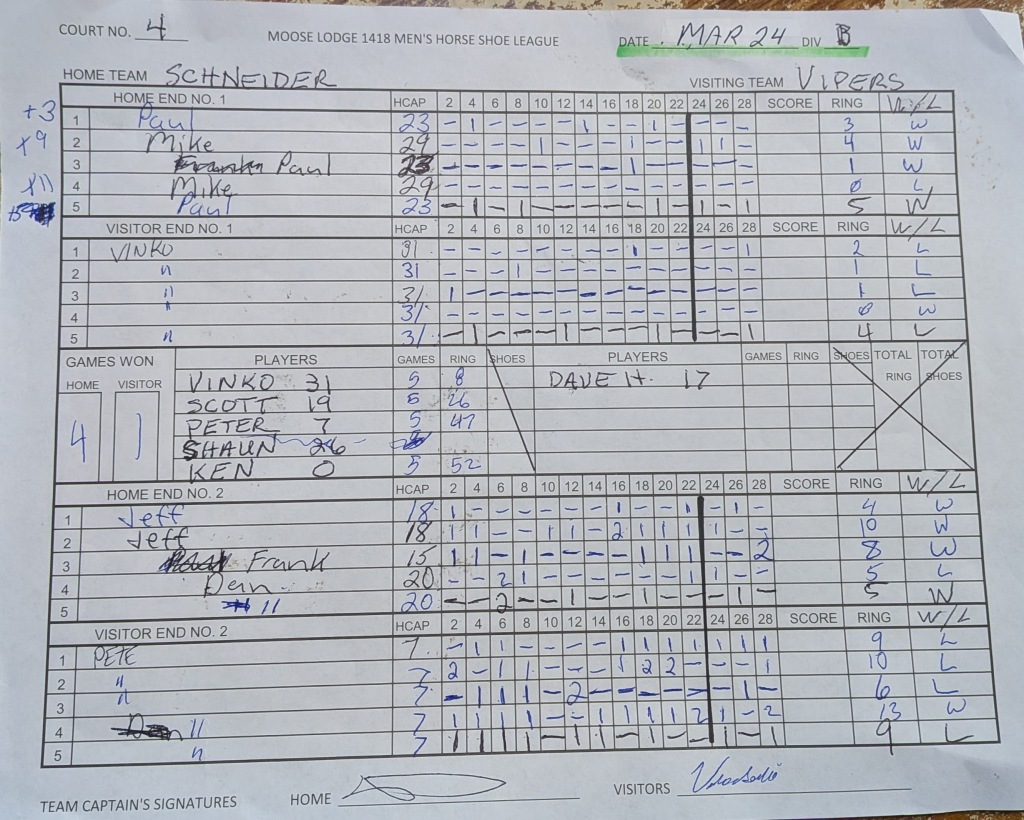 COURT NO. 4 MOOSE LODGE 1418 MEN'S HORSE SHOE LEAGUE DATE MAR 24 DIV B
HOME TEAM SCHNEIDER VISITING TEAM VIPERS
HOME END NO. 1 HCAP 2 4 6 8 10 12 14 16 18 20 22 24 26 28 SCORE RING W/L
+3 1 Paul 23 - 1 - - - - 1 - - 1 - - - - 3 W
+9 2 Mike 29 - - - - 1 - - - 1 - - 1 1 - 4 W
3 Paul 23 - - - - - - - - 1 - - - - - 1 W
+11 4 Mike 29 - - - - - - - - - - - - - - 0 L
5 Paul 23 - 1 - 1 - - - - - 1 - 1 - 1 5 W
VISITOR END NO. 1 HCAP 2 4 6 8 10 12 14 16 18 20 22 24 26 28 SCORE RING W/L
1 VINKO 31 - - - - - - - - 1 - - - - 1 2 L
2 " 31 - - - 1 - - - - - - - - - - 1 L
3 " 31 1 - - - - - - - - - - - - - 1 L
4 " 31 - - - - - - - - - - - - - - 0 W
5 " 31 - 1 - - - 1 - - - 1 - - - 1 4 L
GAMES WON PLAYERS GAMES RING SHOES PLAYERS GAMES RING SHOES TOTAL RING TOTAL SHOES
HOME VISITOR
4 1
VINKO 31 5 8 DAVE H. 17
SCOTT 19 5 26
PETER 7 5 47
SHAUN 26
KEN 0 5 52
HOME END NO. 2 HCAP 2 4 6 8 10 12 14 16 18 20 22 24 26 28 SCORE RING W/L
1 Jeff 18 1 - - - - - - 1 - - 1 - 1 - 4 W
2 Jeff 18 1 1 - - 1 1 - 2 1 1 1 1 - - 10 W
3 Frank 15 1 1 - 1 - - - - 1 1 1 - - 2 8 W
4 Dean 20 - - 2 1 - - - - - - 1 1 - - 5 L
5 " 20 - - 2 - - 1 - 1 - - - - 1 - 5 W
VISITOR END NO. 2 HCAP 2 4 6 8 10 12 14 16 18 20 22 24 26 28 SCORE RING W/L
1 PETE 7 - 1 1 - - - - 1 1 1 1 1 1 1 9 L
2 " 7 2 - 1 1 - - - 1 2 2 - - - 1 10 L
3 " 7 - 1 1 1 - 2 - - - - - - 1 - 6 L
4 " 7 1 1 1 1 - - 1 1 1 1 2 1 - 2 13 W
5 " 7 1 1 1 1 - 1 - 1 - 1 - 1 - 1 9 L
TEAM CAPTAIN'S SIGNATURES HOME VISITORS